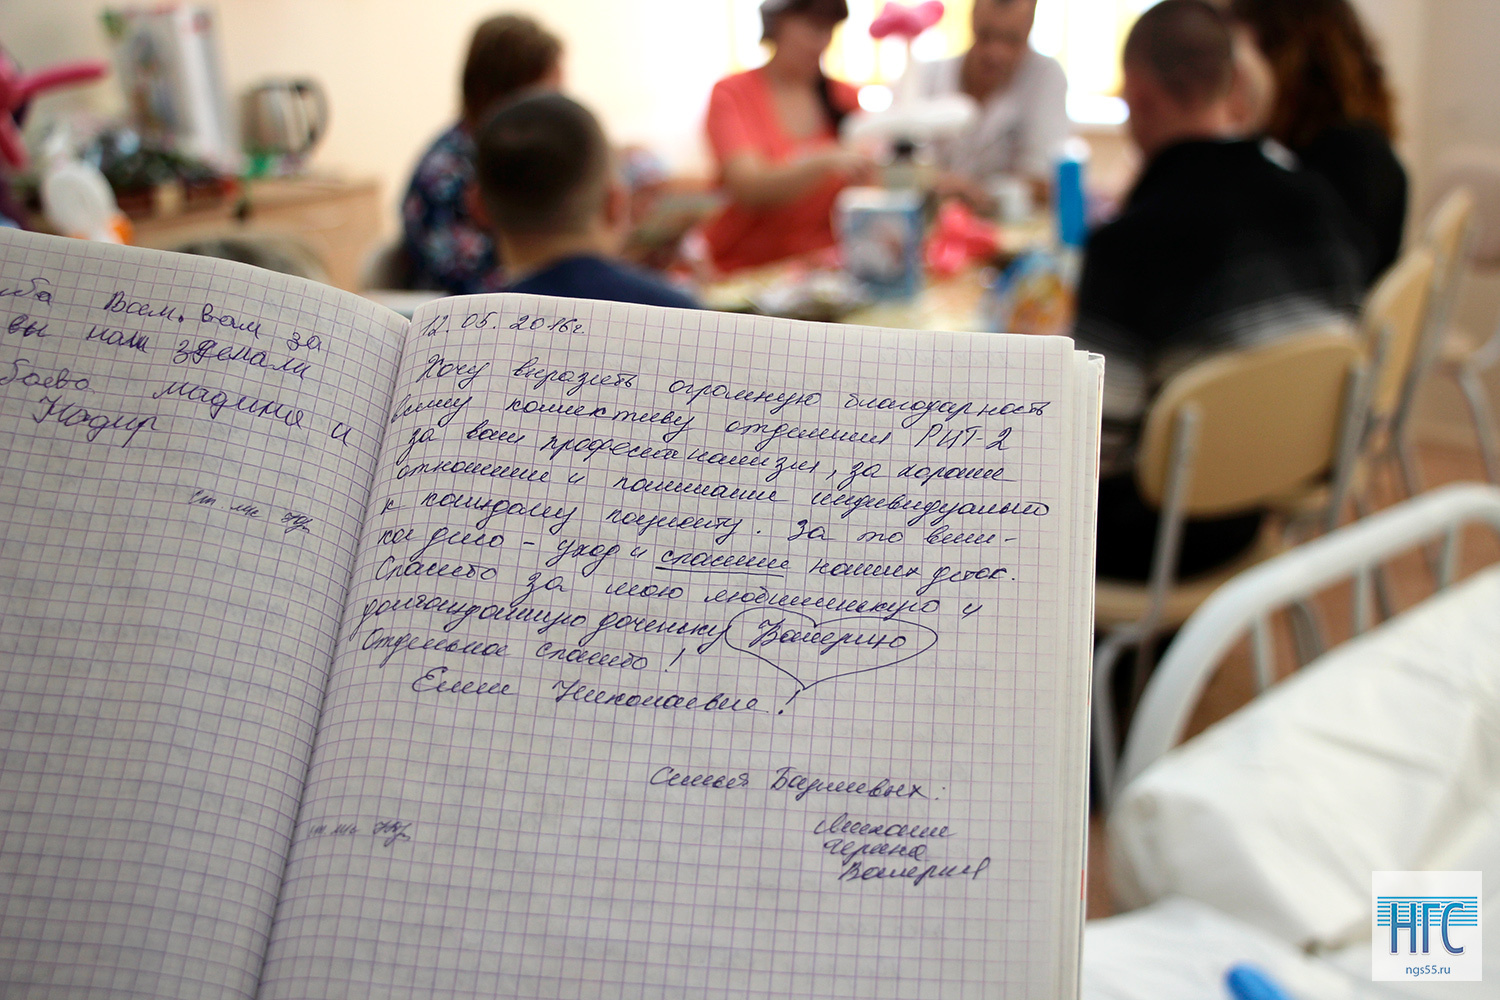 Всем, вам за
вы нам зделали
мадина и
Надир
ст м/с
12.05.2016г.
Хочу выразить огромную благодарность
всему коллективу отделения РИТ-2
за ваш професионализм, за хорошее
отношение и понимание индивидуально
к каждому пациенту. За то вели-
кое дело – уход и спасение наших деток.
Спасибо за мою любименькую и
долгожданную доченьку Валерию
Отдельное спасибо!
Елене Николаевне!
Семья
Валерия
ст м/с
НГС
ngs55.ru